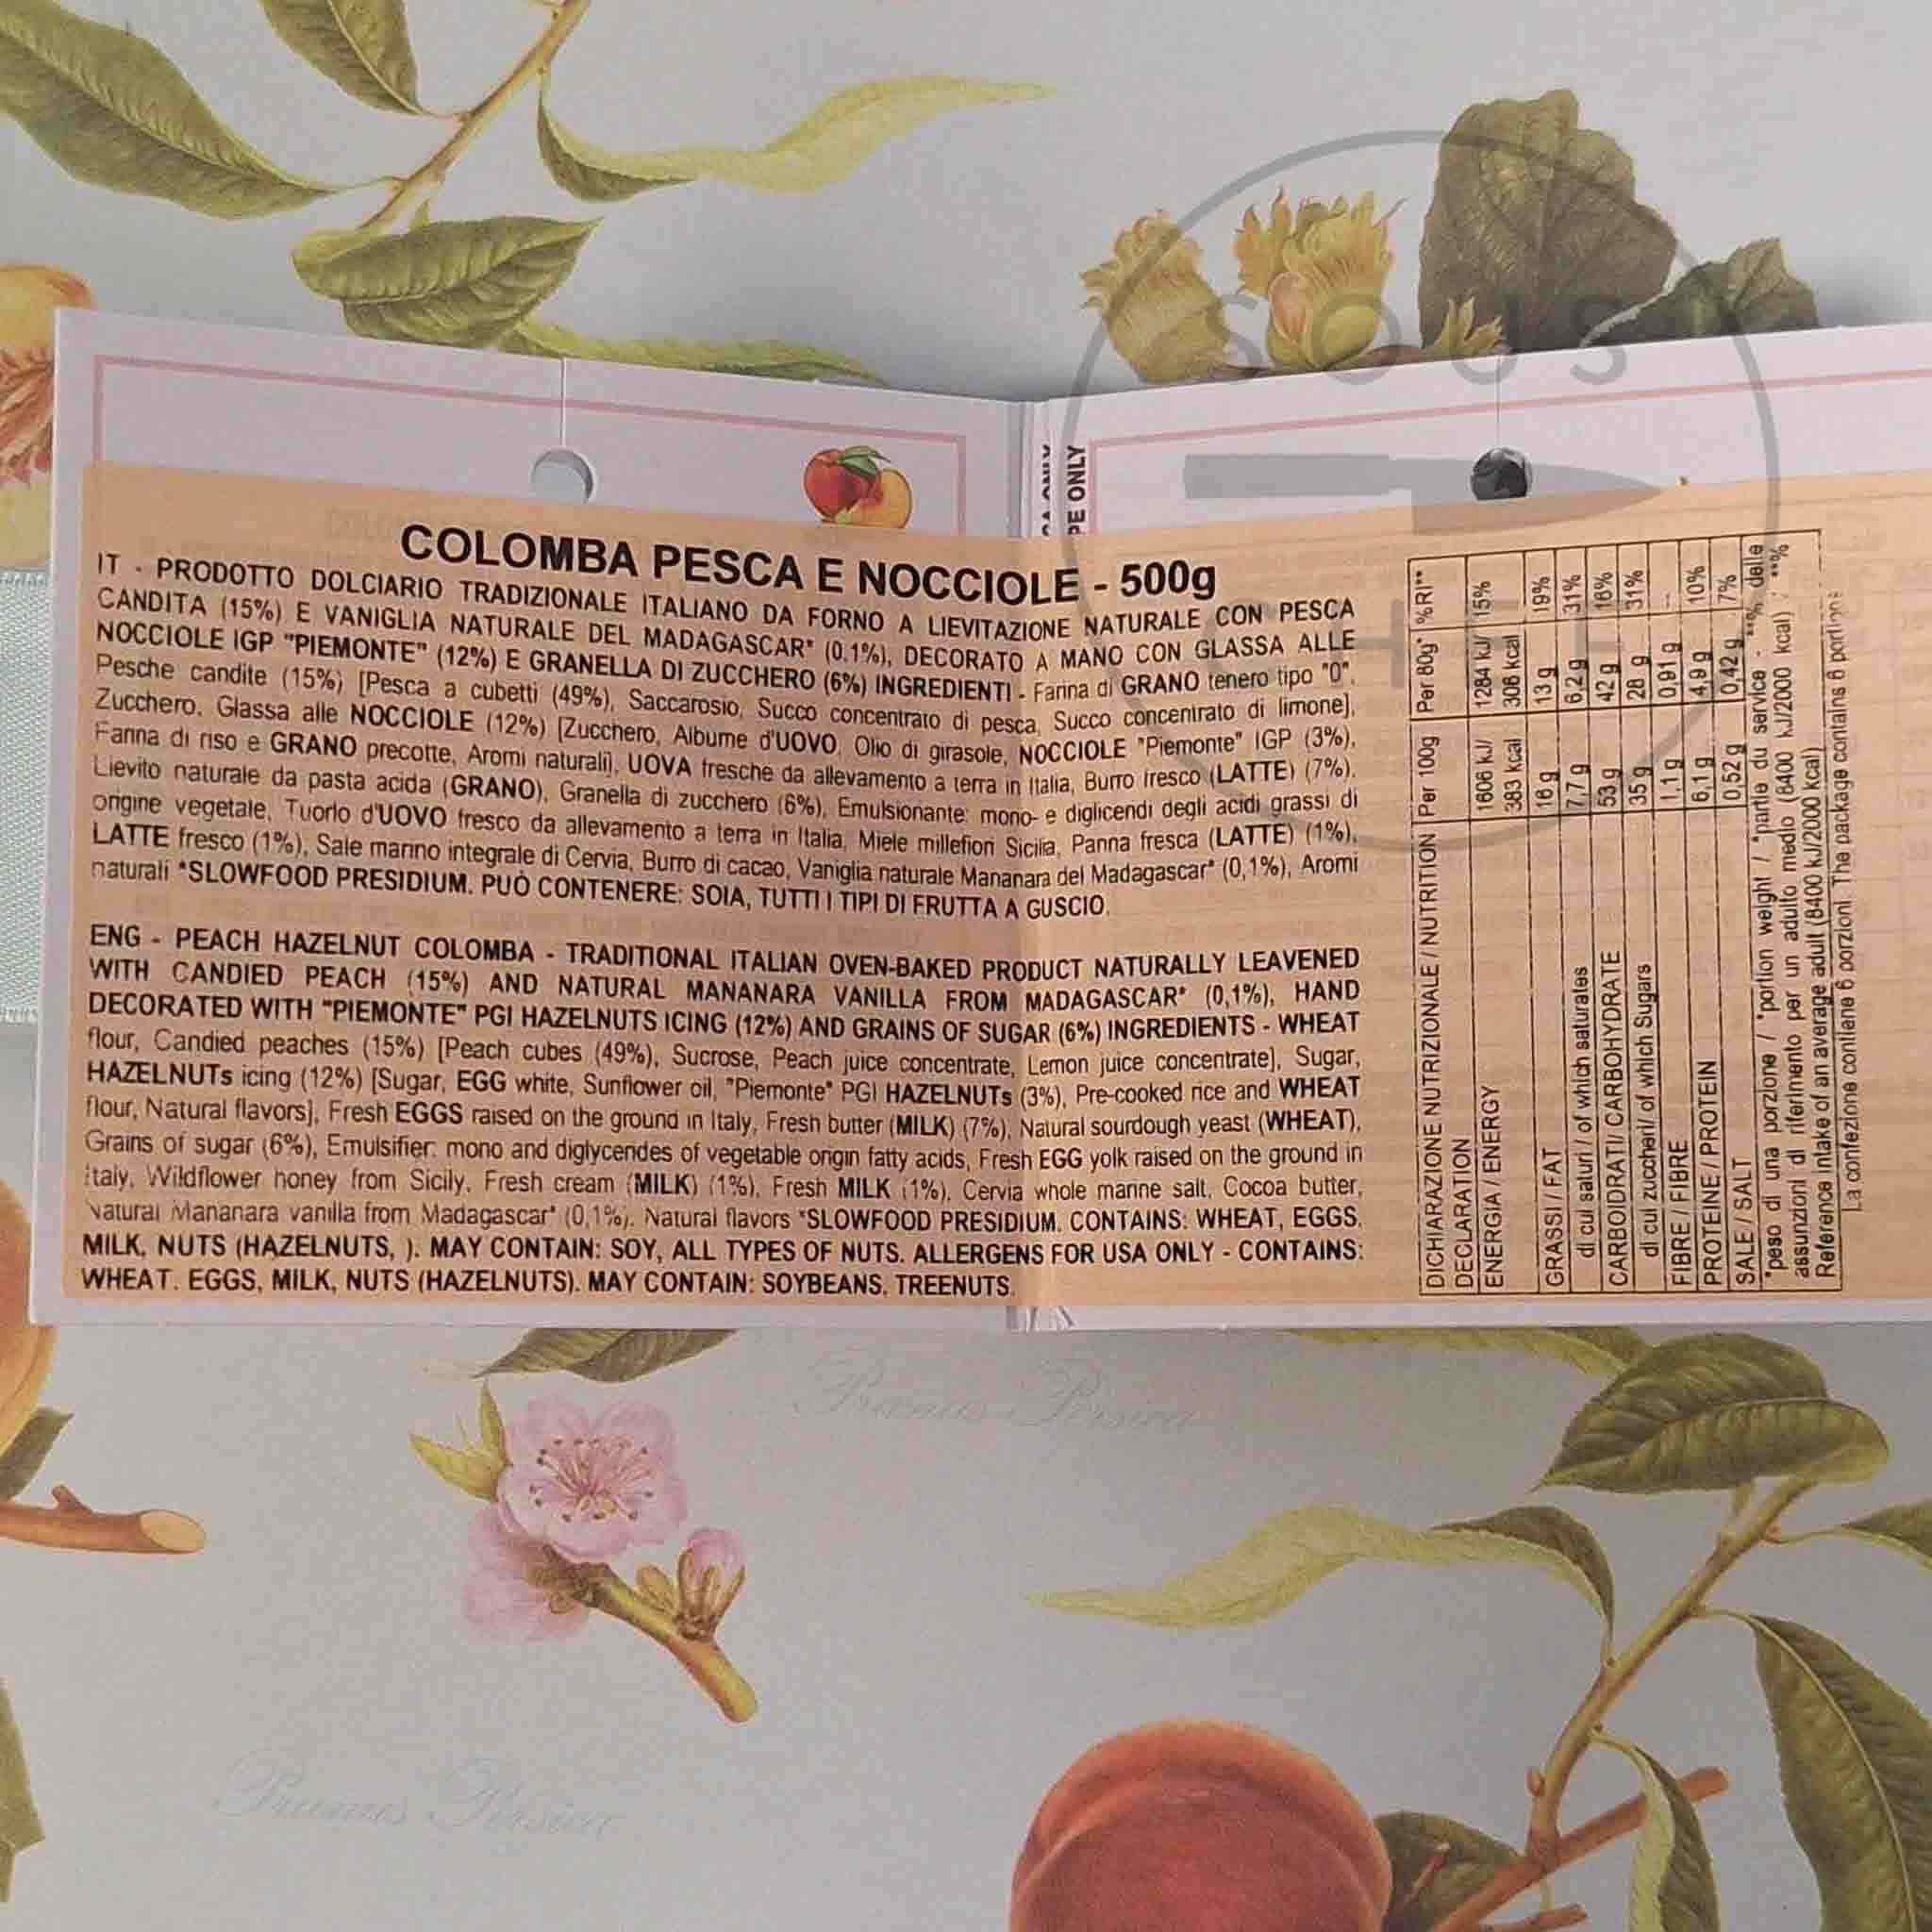 SOUS
CHEF
PE ONLY
COLOMBA PESCA E NOCCIOLE - 500g
IT - PRODOTTO DOLCIARIO TRADIZIONALE ITALIANO DA FORNO A LIEVITAZIONE NATURALE CON PESCA
CANDITA (15%) E VANIGLIA NATURALE DEL MADAGASCAR* (0.1%), DECORATO A MANO CON GLASSA ALLE
NOCCIOLE IGP "PIEMONTE" (12%) E GRANELLA DI ZUCCHERO (6%) INGREDIENTI - Farina di GRANO tenero tipo "0",
Pesche candite (15%) [Pesca a cubetti (49%), Saccarosio, Succo concentrato di pesca, Succo concentrato di limone],
Zucchero, Glassa alle NOCCIOLE (12%) [Zucchero, Albume d'UOVO, Olio di girasole, NOCCIOLE "Piemonte" IGP (3%),
Farina di riso e GRANO precotte, Aromi naturali], UOVA fresche da allevamento a terra in Italia, Burro fresco (LATTE) (7%),
Lievito naturale da pasta acida (GRANO), Granella di zucchero (6%), Emulsionante: mono- e digliceridi degli acidi grassi di
origine vegetale, Tuorlo d'UOVO fresco da allevamento a terra in Italia, Miele millefiori Sicilia, Panna fresca (LATTE) (1%),
LATTE fresco (1%), Sale marino integrale di Cervia, Burro di cacao, Vaniglia naturale Mananara del Madagascar* (0,1%), Aromi
naturali *SLOWFOOD PRESIDIUM. PUÒ CONTENERE: SOIA, TUTTI I TIPI DI FRUTTA A GUSCIO.
ENG - PEACH HAZELNUT COLOMBA - TRADITIONAL ITALIAN OVEN-BAKED PRODUCT NATURALLY LEAVENED
WITH CANDIED PEACH (15%) AND NATURAL MANANARA VANILLA FROM MADAGASCAR* (0,1%), HAND
DECORATED WITH "PIEMONTE" PGI HAZELNUTS ICING (12%) AND GRAINS OF SUGAR (6%) INGREDIENTS - WHEAT
flour, Candied peaches (15%) [Peach cubes (49%), Sucrose, Peach juice concentrate, Lemon juice concentrate], Sugar,
HAZELNUTs icing (12%) [Sugar, EGG white, Sunflower oil, "Piemonte" PGI HAZELNUTs (3%), Pre-cooked rice and WHEAT
flour, Natural flavors], Fresh EGGS raised on the ground in Italy, Fresh butter (MILK) (7%), Natural sourdough yeast (WHEAT),
Grains of sugar (6%), Emulsifier: mono and diglycerides of vegetable origin fatty acids, Fresh EGG yolk raised on the ground in
Italy, Wildflower honey from Sicily, Fresh cream (MILK) (1%), Fresh MILK (1%), Cervia whole marine salt, Cocoa butter,
Natural Mananara vanilla from Madagascar* (0,1%), Natural flavors *SLOWFOOD PRESIDIUM. CONTAINS: WHEAT, EGGS,
MILK, NUTS (HAZELNUTS, ). MAY CONTAIN: SOY, ALL TYPES OF NUTS. ALLERGENS FOR USA ONLY - CONTAINS:
WHEAT. EGGS, MILK, NUTS (HAZELNUTS). MAY CONTAIN: SOYBEANS, TREENUTS.
DICHIARAZIONE NUTRIZIONALE / NUTRITION DECLARATION Per 100g Per 80g* %RI**
ENERGIA / ENERGY 1606 kJ/ 383 kcal 1284 kJ/ 306 kcal 15%
GRASSI / FAT 16 g 13 g 19%
di cui saturi / of which saturates 7,7 g 6,2 g 31%
CARBOIDRATI / CARBOHYDRATE 53 g 42 g 16%
di cui zuccheri / of which Sugars 35 g 28 g 31%
FIBRE / FIBRE 1,1 g 0,91 g --
PROTEINE / PROTEIN 6,1 g 4,9 g 10%
SALE / SALT 0,52 g 0,42 g 7%
*peso di una porzione / *portion weight / *partie du service - **% delle
assunzioni di riferimento per un adulto medio (8400 kJ/2000 kcal) / **%
Reference intake of an average adult (8400 kJ/2000 kcal)
La confezione contiene 6 porzioni. The package contains 6 portions
Prunus Persica
Prunus Persica